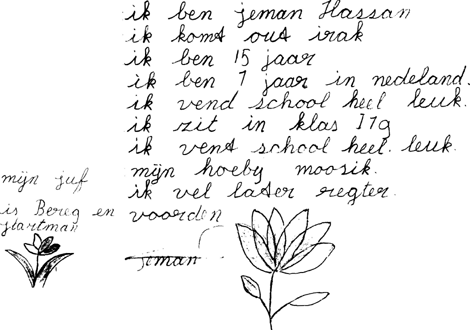 ik ben jeman Hassan
ik komt out irak
ik ben 15 jaar
ik ben 7 jaar in nedeland.
ik vend school heel leuk.
ik zit in klas I7g
ik vent school heel leuk.
mijn hoeby moosik.
ik vel later regter.
voorden
mijn juf
is Bereg en
Hartman
jiman